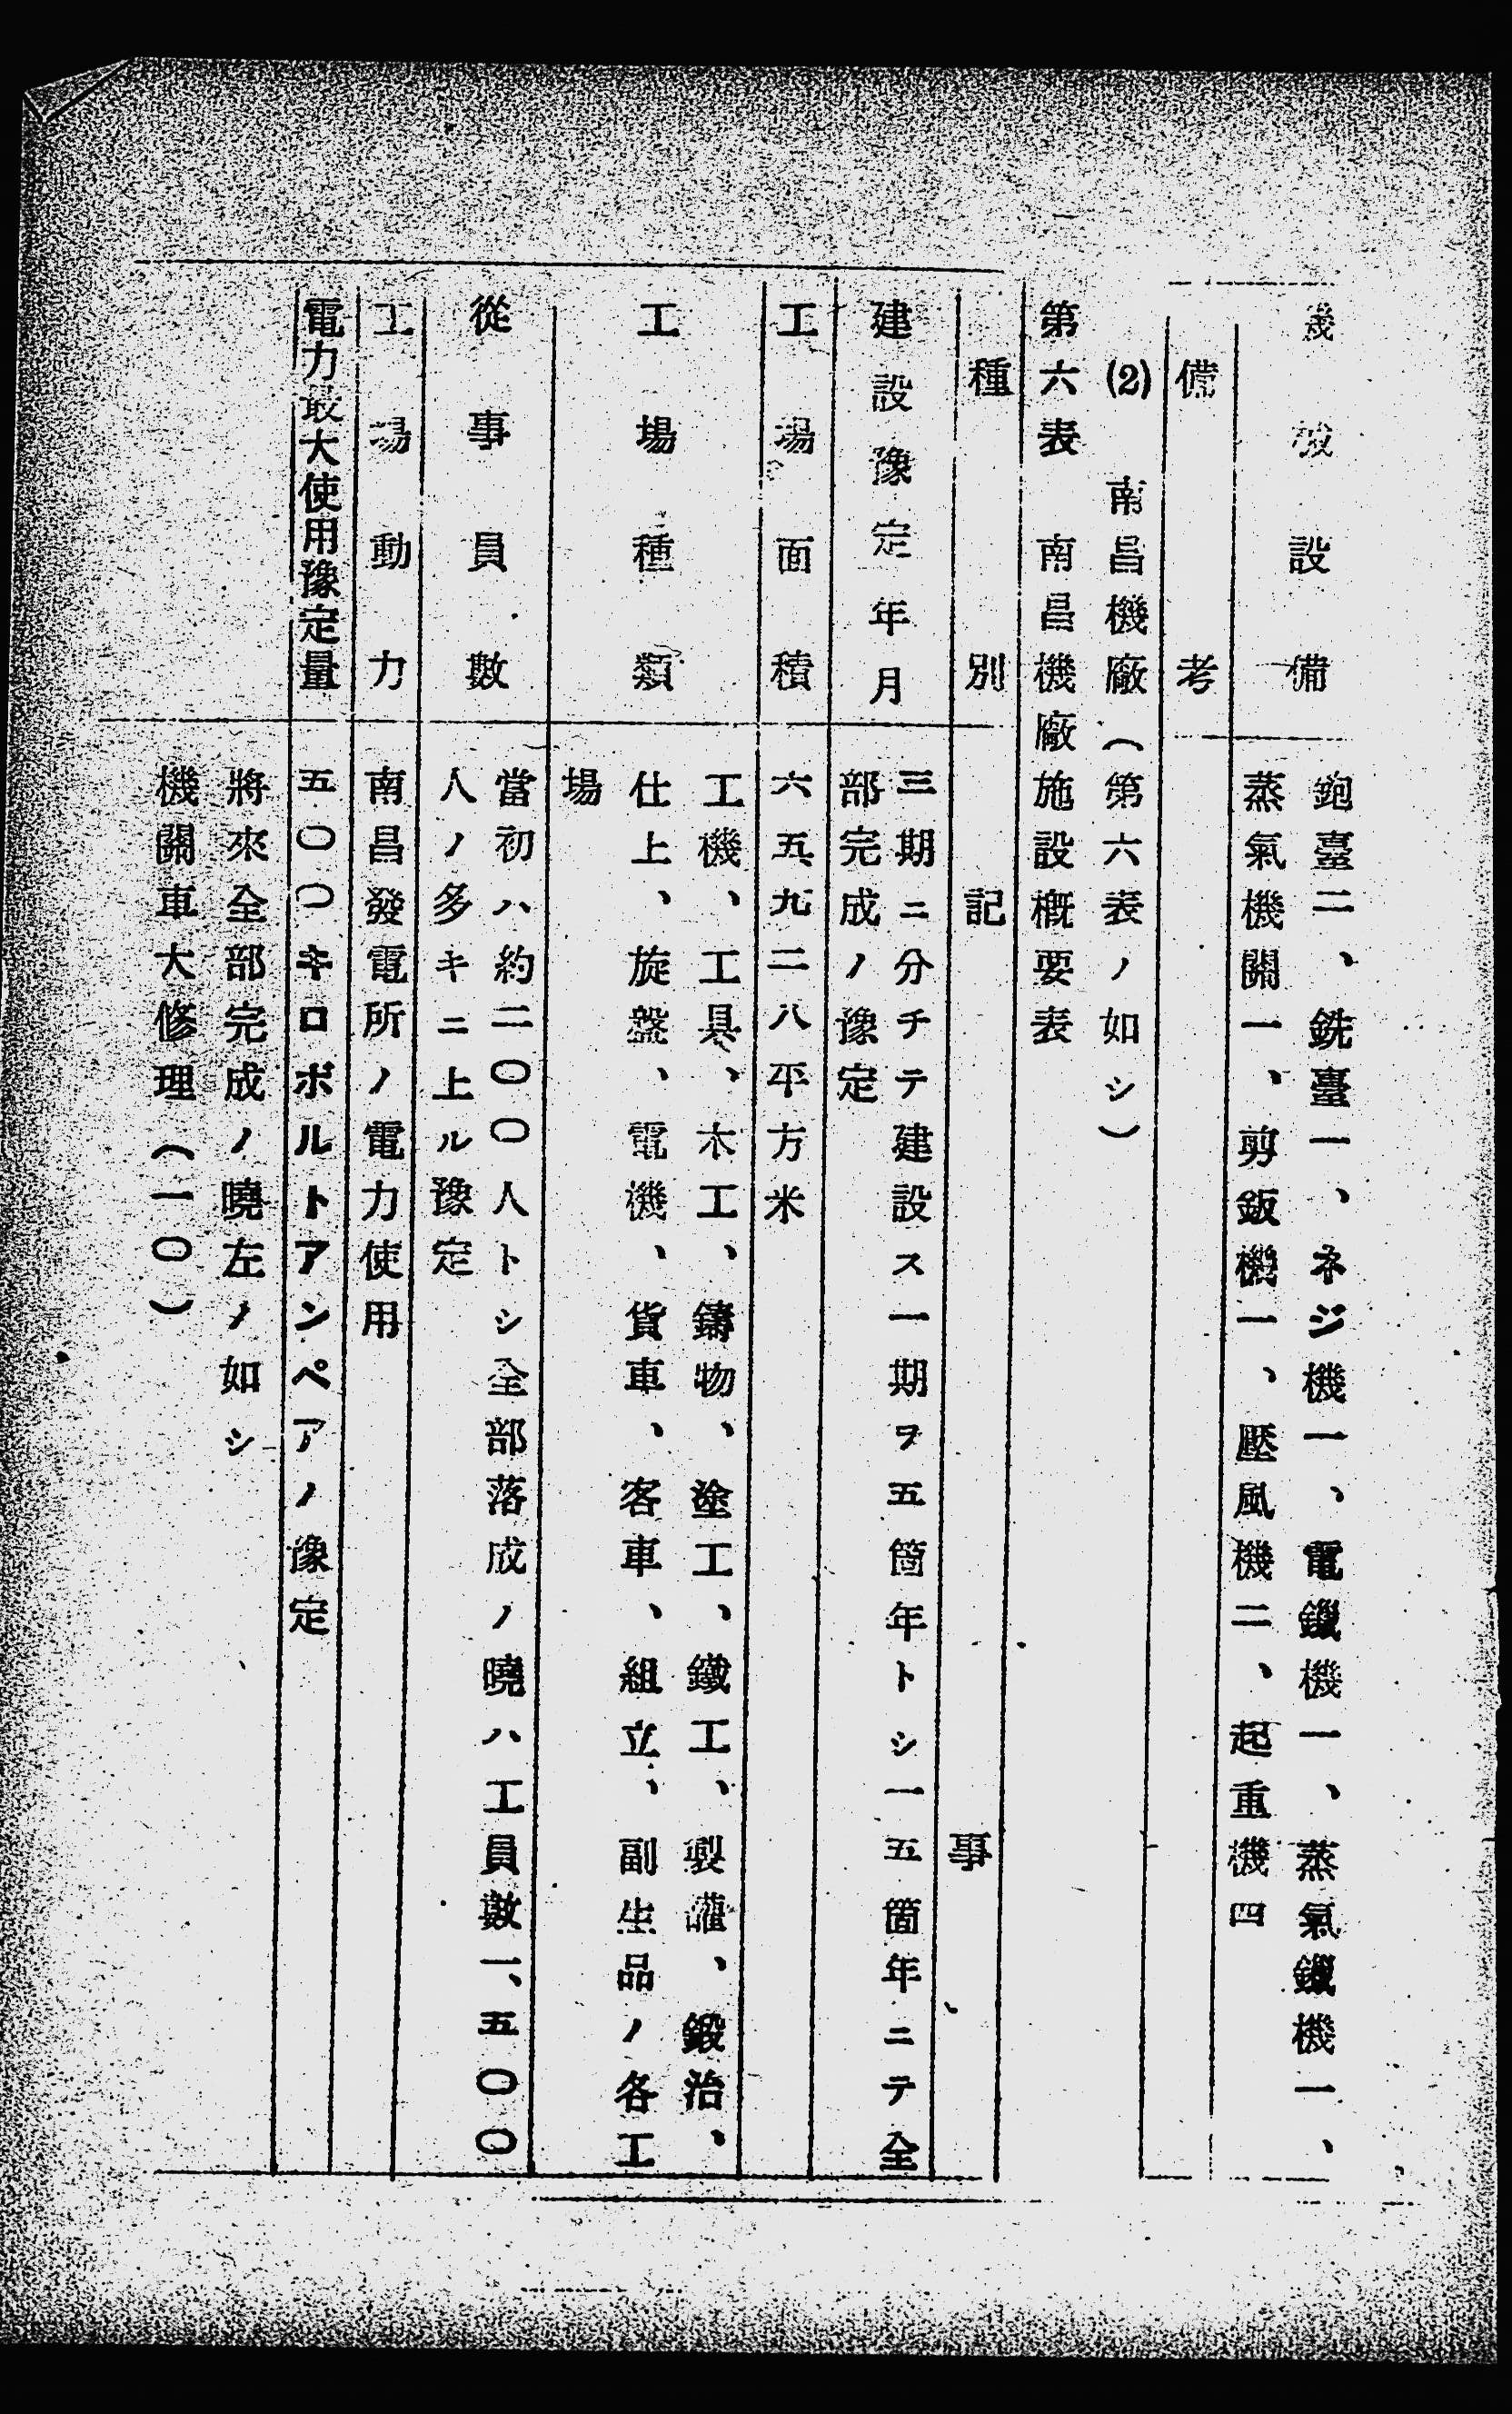 機械設備
鉋臺二、銑臺一、ネジ機一、電鑞機一、蒸氣鑞機一、
蒸氣機關一、剪鈑機一、壓風機二、起重機四
備考
(2) 南昌機廠(第六表ノ如シ)
第六表 南昌機廠施設概要表
種別 記事
建設豫定年月
三期ニ分チテ建設ス一期ヲ五箇年トシ一五箇年ニテ全
部完成ノ豫定
工場面積
六五九二八平方米
工場種類
工機、工具、木工、鑄物、塗工、鐵工、製罐、鍛治、
仕上、旋盤、電機、貨車、客車、組立、副生品ノ各工
場
從事員數
當初ハ約二〇〇人トシ全部落成ノ曉ハ工員數一、五〇〇
人ノ多キニ上ル豫定
工場動力
南昌發電所ノ電力使用
電力最大使用豫定量
五〇〇キロボルトアンペアノ豫定
將來全部完成ノ曉左ノ如シ
機關車大修理(一〇)